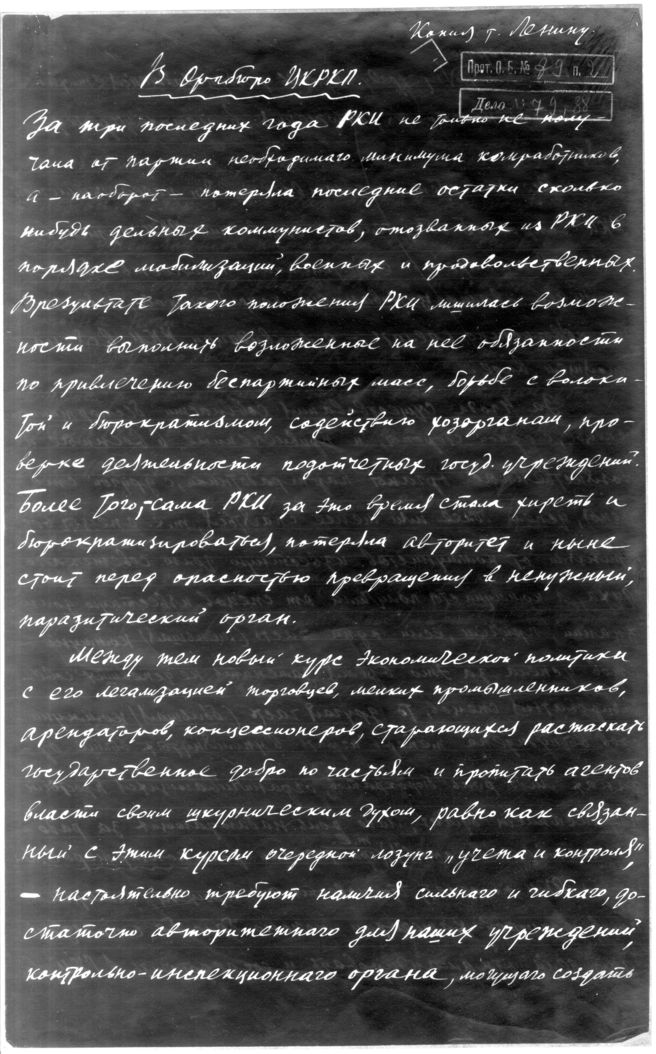 Копия т. Ленину.
Прот. О. Б. № 79 п.
Дело № 79, 88
В Оргбюро ЦКРКП.
За три последних года РКИ не только не полу-
чала от партии необходимаго минимума комработников,
а – наоборот – потеряла последние остатки сколько
нибудь дельных коммунистов, отозванных из РКИ в
порядке мобилизаций, военных и продовольственных.
В результате такого положения РКИ лишилась возмож-
ности выполнить возложенные на нее обязанности
по привлечению беспартийных масс, борьбе с волоки-
той и бюрократизмом, содействию хозорганам, про-
верке деятельности подотчетных госуд. учреждений.
Более того, – сама РКИ за это время стала хиреть и
бюрократизироваться, потеряла авторитет и ныне
стоит перед опасностью превращения в ненужный,
паразитический орган.
Между тем новый курс экономической политики
с его легализацией торговцев, мелких промышленников,
арендаторов, концессионеров, старающихся растаскать
государственное добро по частьям и пропитать агентов
власти своим шкурническим духом, равно как связан-
ный с этим курсом очередной лозунг „учета и контроля",
– настоятельно требуют наличия сильнаго и гибкаго, до-
статочно авторитетнаго для наших учреждений,
контрольно-инспекционнаго органа, могущаго создать